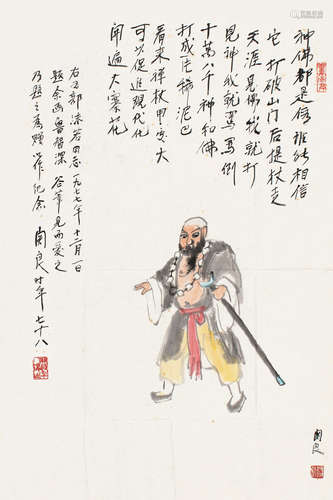 神佛都是假谁能相信
它打破山门后提杖走
天涯見佛我就打
見神我就罵罵倒
十萬八千神和佛
打成一片稀泥巴
看来禅杖用处大
可以促進現代化
開遍大寨花
右乃郭沫若同志一九七七年十二月一日
题余画鲁智深 谷苇見而爱之
乃题之為赠 作纪念 関良时年七十八
関良